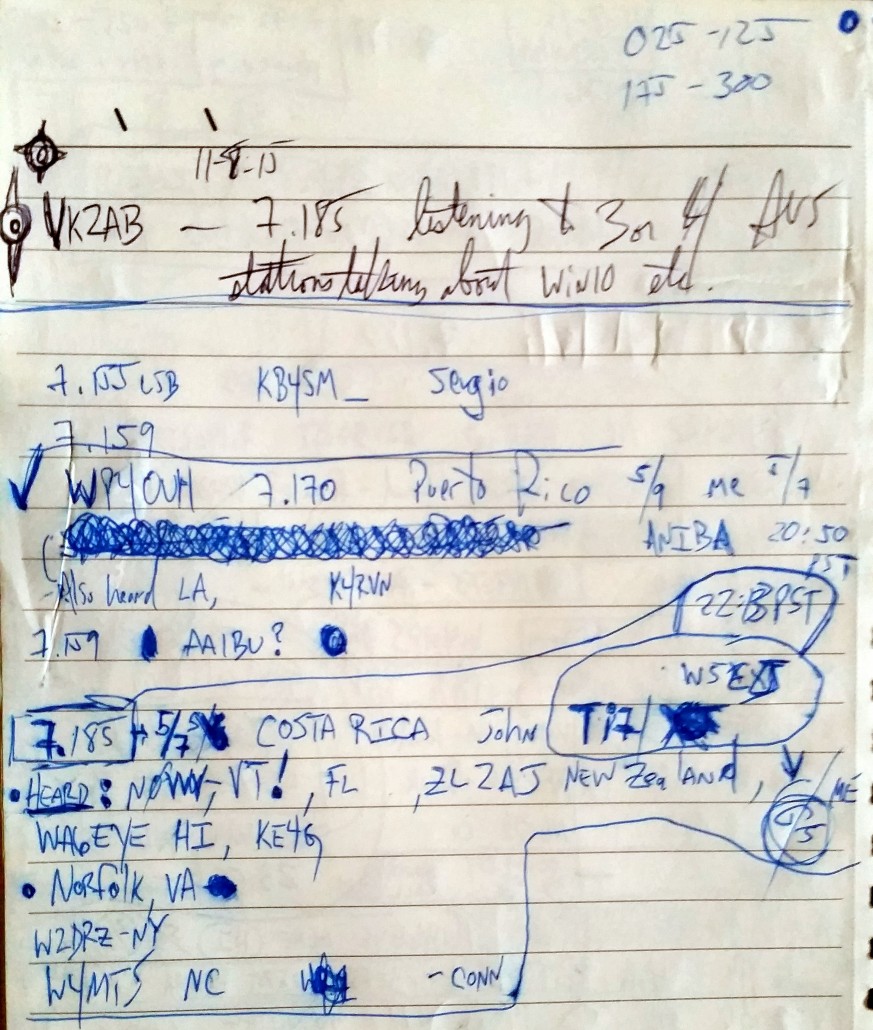 025-125
175-300
11-8-15
VK2AB — 7.185 listening to 3 or 4 AUS
stations talking about Win10 etc.
7.155 LSB KB4SM_ Sergio
7.159
WP4OUH 7.170 Puerto Rico 5/9 me 5/7
ANIBA 20:50
PST
-Also heard LA, K4ZVN
22:13 PST
7.159 AA1BU?
W5EXJ
7.185 5/7 COSTA RICA John Ti7/
• HEARD: VT!, FL, ZL2AJ NEW ZeaLANd, ME
WA6EYE HI, KE4G
5
• Norfolk, VA
W2DRZ-NY
W4MTS NC -CONN